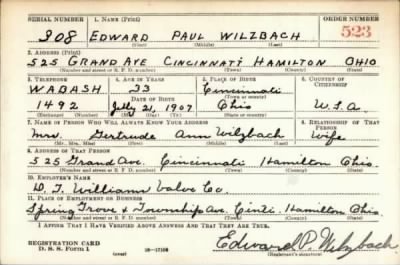 SERIAL NUMBER 1. NAME (Print) ORDER NUMBER
308 EDWARD PAUL WILZBACH 523
(First) (Middle) (Last)
2. ADDRESS (Print)
525 GRAND AVE CINCINNATI HAMILTON OHIO
(Number and street or R. F. D. number) (Town) (County) (State)
3. TELEPHONE 4. AGE IN YEARS 5. PLACE OF BIRTH 6. COUNTRY OF CITIZENSHIP
WABASH 33 Cincinnati
DATE OF BIRTH (Town or county)
1492 July 21, 1907 Ohio U.S.A.
(Exchange) (Number) (Mo.) (Day) (Yr.) (State or country)
7. NAME OF PERSON WHO WILL ALWAYS KNOW YOUR ADDRESS 8. RELATIONSHIP OF THAT PERSON
Mrs. Gertrude Ann Wilzbach Wife
(Mr., Mrs., Miss) (First) (Middle) (Last)
9. ADDRESS OF THAT PERSON
525 Grand Ave. Cincinnati Hamilton Ohio.
(Number and street or R. F. D. number) (Town) (County) (State)
10. EMPLOYER'S NAME
D. T. Williams Valve Co.
11. PLACE OF EMPLOYMENT OR BUSINESS
Spring Grove & Township Ave. Cinti. Hamilton Ohio.
(Number and street or R. F. D. number) (Town) (County) (State)
I AFFIRM THAT I HAVE VERIFIED ABOVE ANSWERS AND THAT THEY ARE TRUE.
REGISTRATION CARD
D. S. S. FORM 1 (over) 16-17105 Edward P. Wilzbach